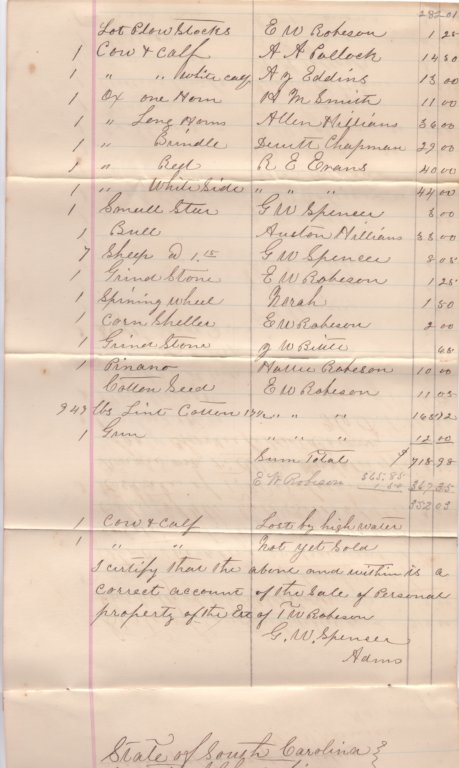 282 01
Lot Plow Stocks E W Robeson 1 25
1 Cow & Calf A A Pollock 14 50
1 " " White calf A J Eddins 13 00
1 Ox one Horn H M Smith 11 00
1 " Long Horns Allen Hillians 36 00
1 " Brindle Dewitt Chapman 29 00
1 " Red R E Evans 40 00
1 " White Side " " " 44 00
1 Small Steer G W Spencer 8 00
1 Bull Auston Hillians 35 00
7 Sheep @ 1.15 G W Spencer 8 05
1 Grind Stone E W Robeson 1 25
1 Spining Wheel Norah 1 50
1 Corn Sheller E W Robeson 2 00
1 Grind Stone J W 65
1 Pinano Hattie Robeson 10 00
Cotton Seed E W Robeson 11 05
949 lbs Lint Cotton " " " 165 72
1 Gun " " " 12 00
Sum Total $ 718 98
E W Robeson 365.85 367 35
1.50
352 03
1 Cow & Calf Lost by high water
1 " " Not yet Sold
I certify that the above and within is a
correct account of the Sale of Personal
property of the Est of T W Robeson
G. W. Spencer
Admo
State of South Carolina }